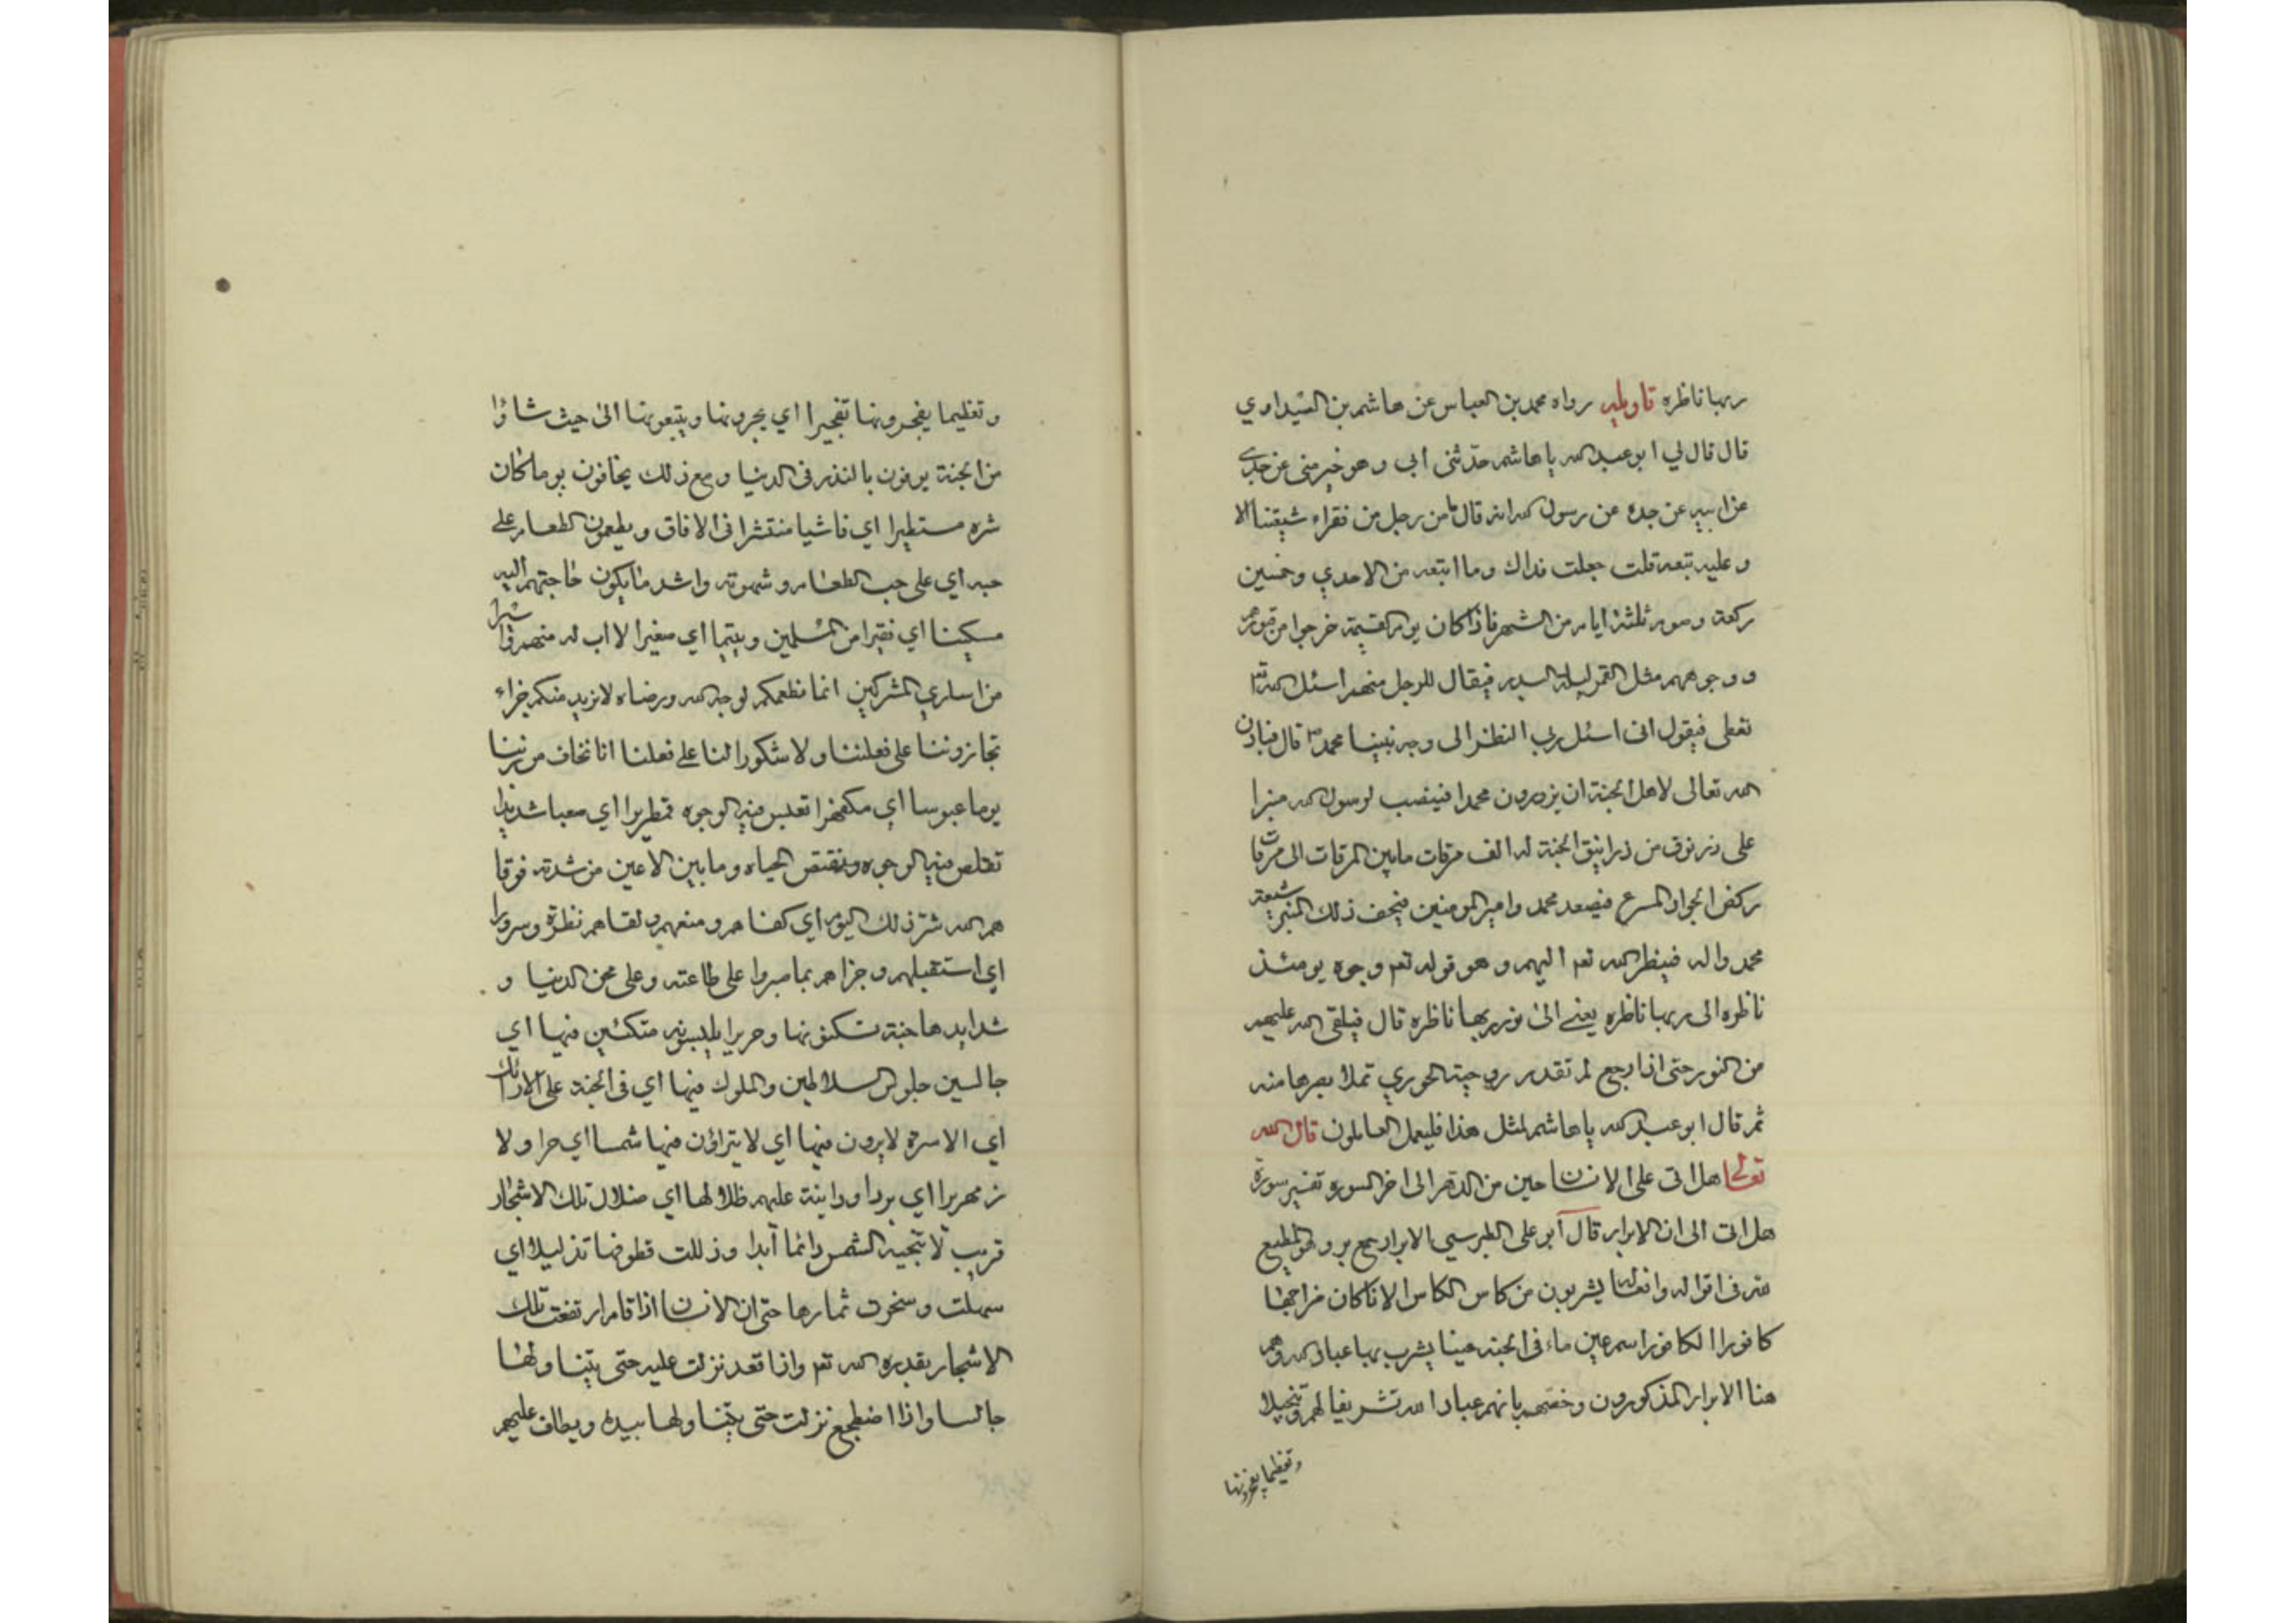 ربها ناظره تاويله رواه محمد بن العباس عن هاشم بن الصيداوي
قال قال لي ابو عبد الله يا هاشم حدثني ابي وهو خير مني عن جدي
عن ابيه عن جده عن رسول الله انه قال ما من رجل من فقراء شيعتنا الا
و عليه تبعه قلت جعلت فداك وما التبعه من الاحدي وخمسين
ركعة وصوم ثلثة ايام من الشهر فاذا كان يوم القيمة خرجوا من قبورهم
و وجوههم مثل القمر ليلة البدر فيقال للرجل منهم اسئل الله
تعطى فيقول اني اسئل ربي النظر الى وجه نبينا محمد ص قال فياذن
الله تعالى لاهل الجنة ان يزورون محمدا فينصب لرسول الله منبرا
على درنوق من درانيق الجنة له الف مرقات ما بين المرقات الى مرقات
ركض الجواد المسرع فيصعد محمد وامير المومنين فيحف ذلك المنبر شيعة
محمد واله فينظر الله تعم اليهم و هو قوله تعم وجوه يومئذ
ناظره الى ربها ناظره يعنى الى نور ربها ناظره قال فيلقى الله عليهم
من النور حتى اذا رجع لم تقدر روجيته الحوري تملا بصرها منه
ثم قال ابو عبد الله يا هاشم لمثل هذا فليعمل العاملون قال الله
تعالى هل اتى على الانسان حين من الدهر الى اخر السوره تفسير سورة
هل اتى الى ان الابرار قال ابو على الطبرسي الابرار جمع بر وهو المطيع
لله في اقواله وافعاله يشربون من كاس الكاس الانا كان مزاجها
كافورا الكافور اسم عين ماء فى الجنة عينا يشرب بها عباد الله وهم
هنا الابرار المذكورون وخصهم بانهم عباد الله تشريفا لهم وتبجيلا
وتعظيما يفجرونها
و تعظيما يفجرونها تفجيرا اي يجرونها و يتبعونها الى حيث شاؤا
من الجنة يوفون بالنذر فى الدنيا و مع ذلك يخافون يوما كان
شره مستطيرا اي فاشيا منتشرا فى الافاق و يطعمون الطعام على
حبه اي على حب الطعام و شهوته واشد ما يكون حاجتهم اليه
مسكينا اي فقيرا من المسلمين و يتيما اي صغيرا لا اب له منهم واسيرا
من اساري المشركين انما نطعمكم لوجه الله و رضاه لا نريد منكم جزاء
تجازوننا على فعلنا ولا شكورا لنا على فعلنا انا نخاف من ربنا
يوما عبوسا اي مكفهرا تعبس فيه الوجوه قمطريرا اي صعبا شديدا
تقلص فيه الوجوه و تقتبض الجباه وما بين الاعين من شدته فوقا
هم الله شر ذلك اليوم اي كفاهم و منعهم و لقاهم نظرة وسرورا
اي استقبلهم و جزاهم بما صبروا على طاعته و على محن الدنيا و
شدايدها جنة تسكنونها و حريرا يلبسونه متكئين فيها اي
جالسين جلوس السلاطين والملوك فيها اي فى الجنة على الارائك
اي الاسرة لا يرون فيها اي لا يتراؤن فيها شمسا اي حرا و لا
زمهريرا اي بردا و دانية عليهم ظلالها اي ضلال تلك الاشجار
قريب لا تنجيه الشمس دائما أبدا و ذللت قطوفها تذليلا اي
سهلت و سخرت ثمارها حتى ان الانسان اذا قام ارتفعت تلك
الاشجار بقدره الله تعم واذا قعد نزلت عليه حتى يتناولها
جالسا واذا اضطجع نزلت حتى يتناولها بيده ويطاف عليهم